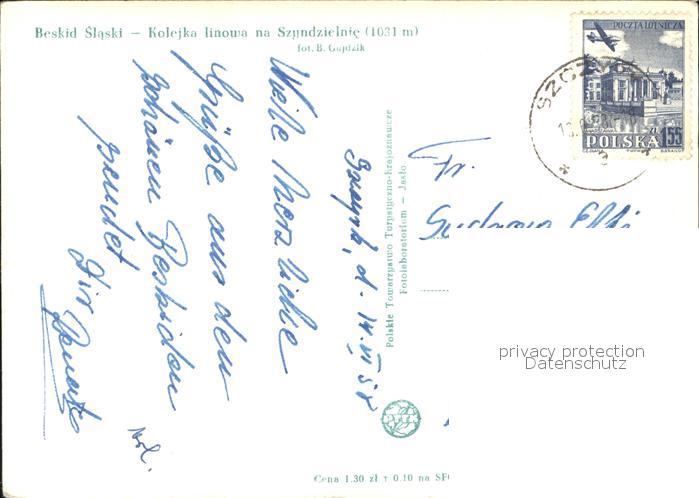 Beskid Śląski — Kolejka linowa na Szyndzielnię (1031 m)
fot. B. Gajdzik
POCZTA LOTNICZA
1.55
ZŁ
POLSKA
Viele herzliche
Grüße aus den
schönen Beskiden
sendet
Dir
Szczyrk, d. 14.VI 58
Polskie Towarzystwo Turystyczno-krajoznawcze
Fotolaboratorium — Jasło
Fr.
privacy protection
Datenschutz
Cena 1.30 zł + 0.10 na SFO